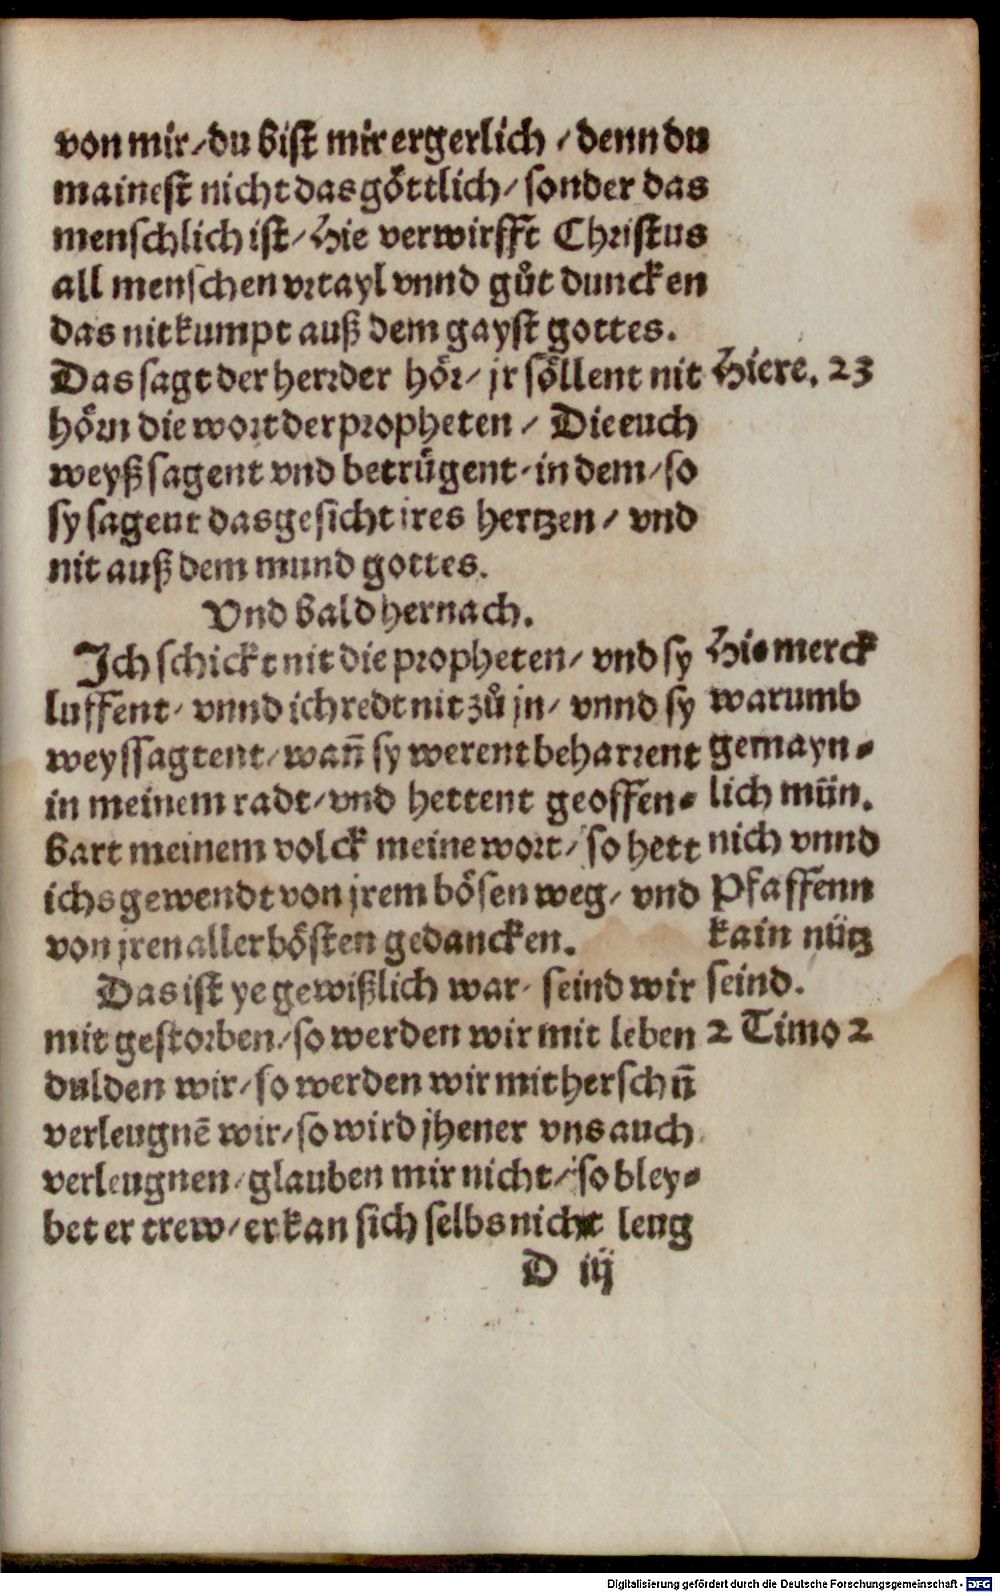 von mir / du bist mir ergerlich / denn du
mainest nicht das göttlich / sonder das
menschlich ist / Hie verwirfft Christus
all menschen vrtayl vnnd gůt duncken
das nit kumpt auß dem gayst gottes.
Das sagt der herr der hör / jr söllent nit
hörn die wort der propheten / Die euch
weyßsagent vnd betrügent / in dem / so
sy sagent das gesicht ires hertzen / vnd
nit auß dem mund gottes.
Vnd bald hernach.
Ich schickt nit die propheten / vnd sy
luffent / vnnd ich redt nit zů jn / vnnd sy
weyssagtent / wañ sy werent beharrent
in meinem radt / vnd hettent geoffen-
bart meinem volck meine wort / so hett
ichs gewendt von jrem bösen weg / vnd
von jren aller bösten gedancken.
Das ist ye gewißlich war / seind wir
mit gestorben / so werden wir mit leben
dulden wir / so werden wir mit hersch ñ
verleugnē wir / so wird jhener vns auch
verleugnen / glauben mir nicht / so bley-
bet er trew / er kan sich selbs nicht leug
D iij
Hiere. 23
Hie merck
warumb
gemayn-
lich mün.
nich vnnd
Pfaffenn
kain nütz
seind.
2 Timo 2
Digitalisierung gefördert durch die Deutsche Forschungsgemeinschaft - DFG